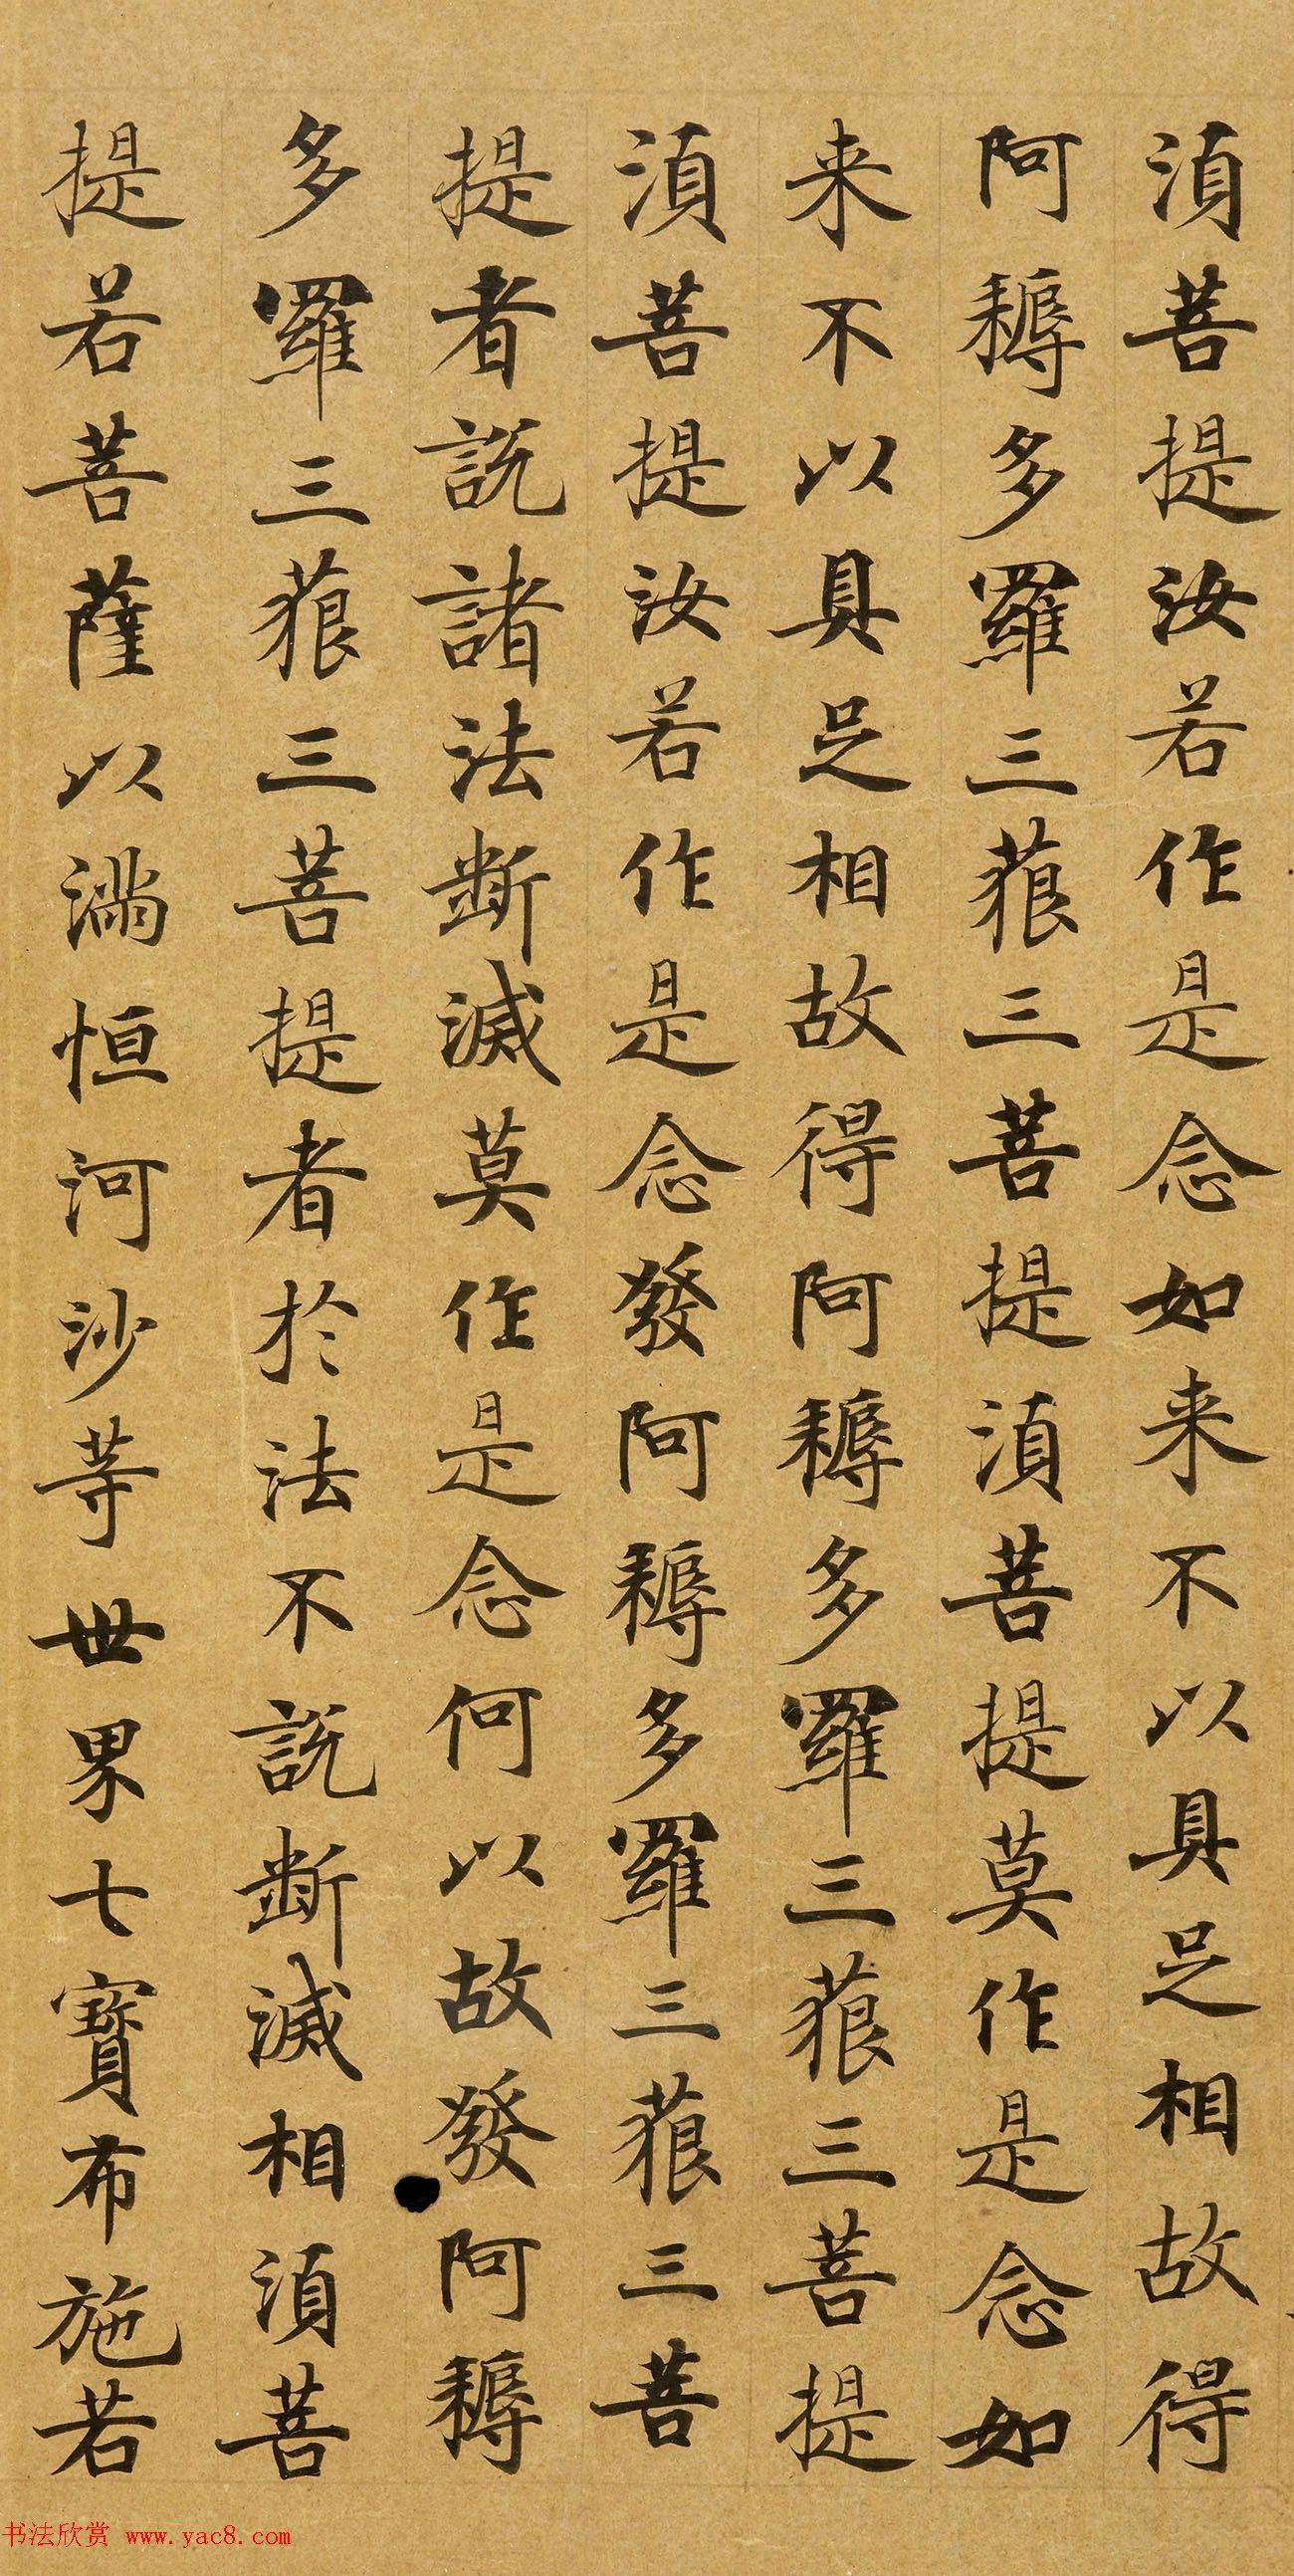 湏菩提汝若作是念如来不以具足相故得
阿耨多羅三藐三菩提湏菩提莫作是念如
来不以具足相故得阿耨多羅三藐三菩提
湏菩提汝若作是念發阿耨多羅三藐三菩
提者説諸法断滅莫作是念何以故發阿耨
多羅三藐三菩提者於法不説断滅相湏菩
提若菩薩以滿恒河沙等世界七寶布施若
书法欣赏 www.yac8.com